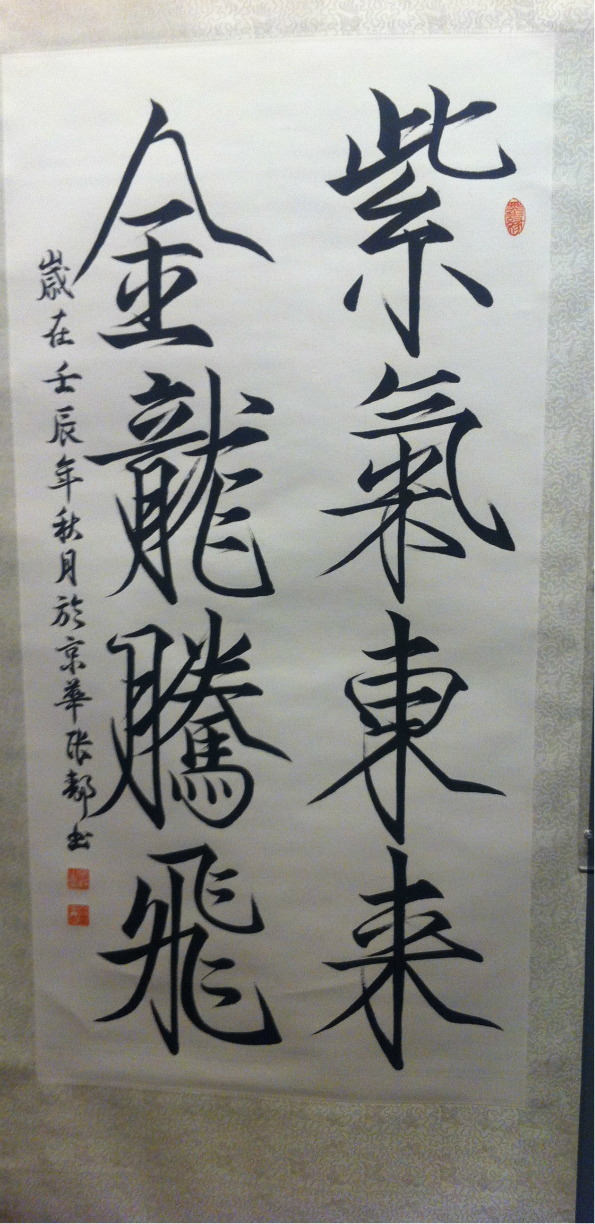 紫氣東来
金龍騰飛
歲在壬辰年秋月於京華張都书